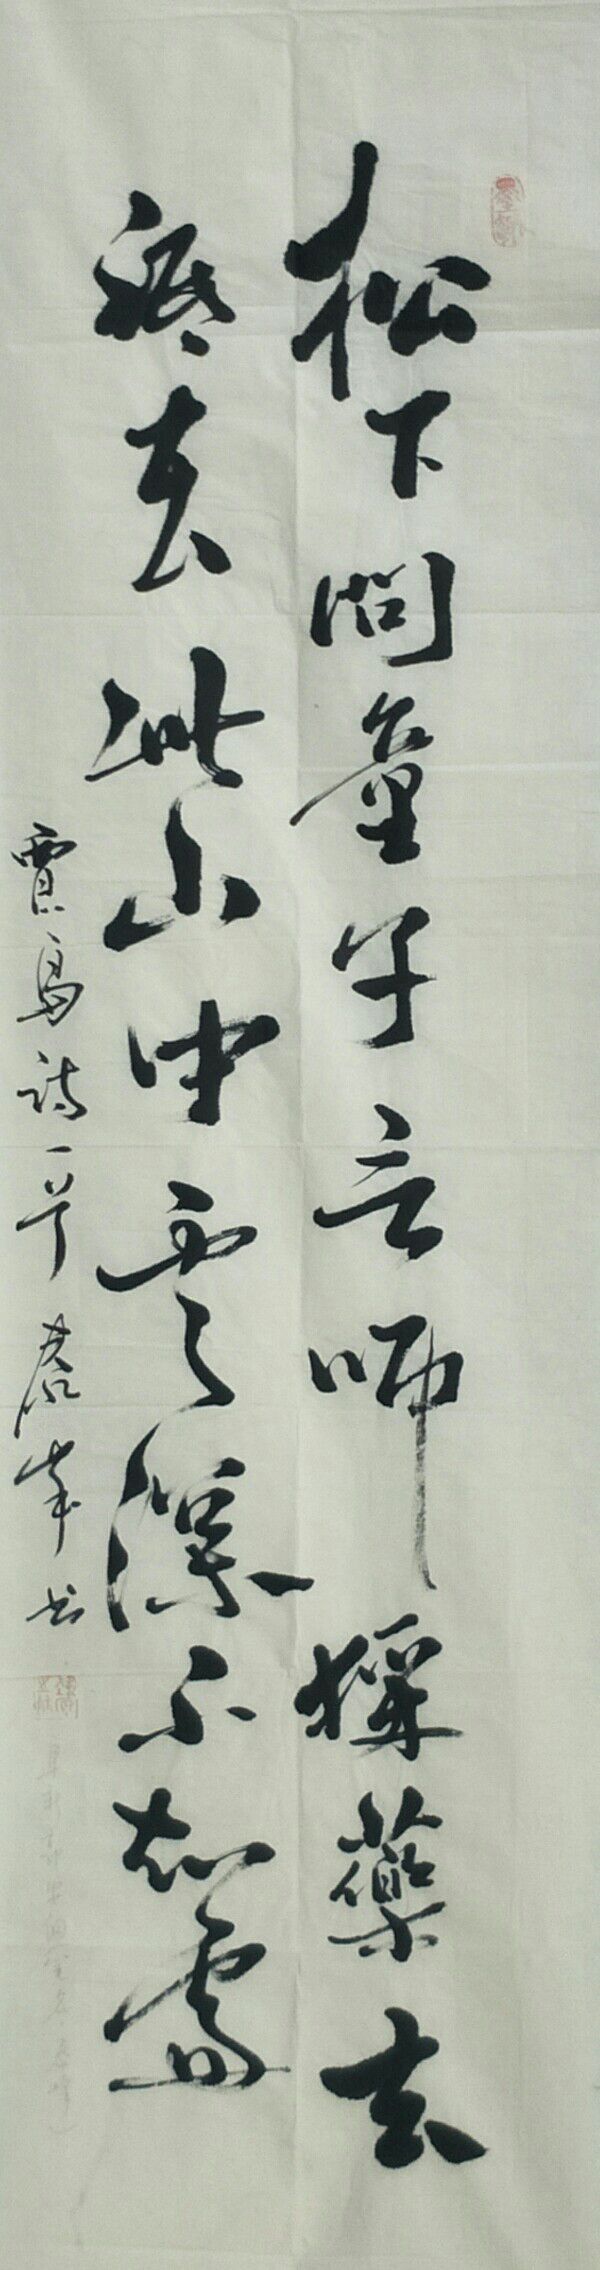 松下問童子言師採藥去
祇在此山中雲深不知處
賈島詩一首 君峯书